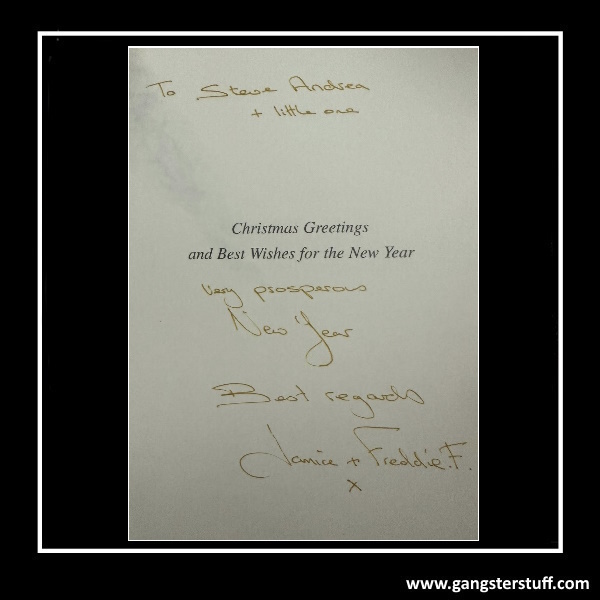 To Steve Andrea
+ little one
Christmas Greetings
and Best Wishes for the New Year
Very prosperous
New Year
Best regards
Janice + Freddie.F.
x
www.gangsterstuff.com